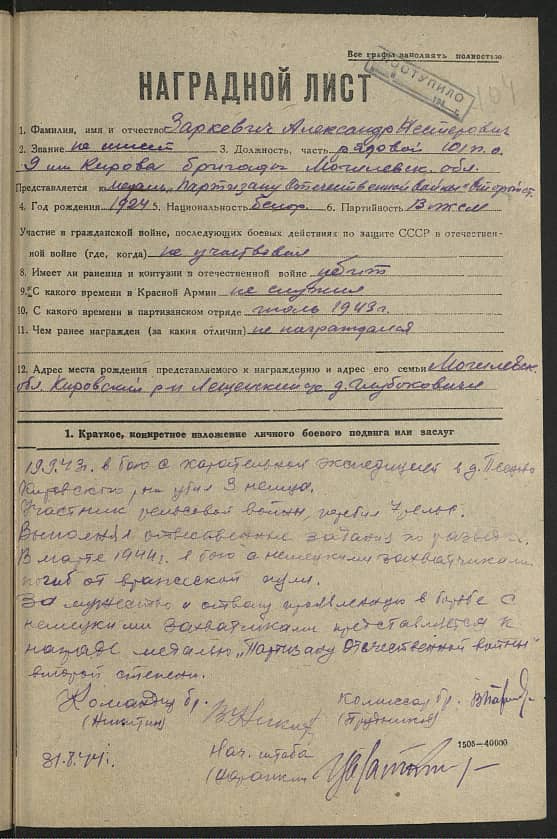 Все графы заполнять полностью
ПОСТУПИЛО
104
НАГРАДНОЙ ЛИСТ
1. Фамилия, имя и отчество Заркевич Александр Нестерович
2. Звание не имеет 3. Должность, часть рядовой 101 п.о.
9 им Кирова бригады Могилевск. обл.
Представляется к медаль, Партизану Отечественной войны" II ой ст.
4. Год рождения 1924 5. Национальность белор. 6. Партийность ВЛКСМ
Участие в гражданской войне, последующих боевых действиях по защите СССР в отечествен-
ной войне (где, когда) не участвовал
8. Имеет ли ранения и контузии в отечественной войне убит
9. С какого времени в Красной Армии не служил
10. С какого времени в партизанском отряде июль 1943 г.
11. Чем ранее награжден (за какия отличия) не награждался
12. Адрес места рождения представляемого к награждению и адрес его семьи Могилевск.
обл. Кировский р-н с/с д. Глубоковичи
1. Краткое, конкретное изложение личного боевого подвига или заслуг
в бою с карательной экспедицией в д.
Кировского р-на убил 3 немца.
Участник рельсовой войны, перебил 7 рельс.
Выполнял ответственные задания по разведке.
В марте 1944 г. в бою с немецкими захватчиками
погиб от вражеской пули.
За мужество и отвагу проявленную в борьбе с
немецкими захватчиками представляется к
награде медалью „Партизану Отечественной войны"
второй степени.
Командир бр. Комиссар бр.
(Никитин)
31.8.44 г. Нач. штаба
1505-40000